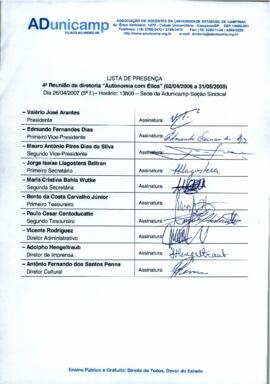 ADunicamp
ASSOCIAÇÃO DE DOCENTES DA UNIVERSIDADE ESTADUAL DE CAMPINAS
FILIADA AO ANDES-SN
LISTA DE PRESENÇA
4ª Reunião da diretoria "Autonomia com Ética" (02/04/2006 a 31/05/2008)
Dia 26/04/2007 (5ª f.)– Horário: 13h00 – Sede da Adunicamp-Seção Sindical
– Valério José Arantes
Presidente
Assinatura:
– Edmundo Fernandes Dias
Primeiro Vice-Presidente
Assinatura: Edmundo Fernandes Dias
– Mauro Antônio Pires Dias da Silva
Segundo Vice-Presidente
Assinatura:
– Jorge Isaías Llagostera Beltran
Primeiro Secretário
Assinatura: Llagostera
– Maria Cristina Bahia Wutke
Segunda Secretária
Assinatura:
– Bento da Costa Carvalho Júnior
Primeiro Tesoureiro
Assinatura:
– Paulo Cesar Centoducatte
Segundo Tesoureiro
Assinatura:
– Vicente Rodriguez
Diretor Administrativo
Assinatura:
– Adolpho Hengeltraub
Diretor de Imprensa
Assinatura: AHengeltraub
– Antônio Fernando dos Santos Penna
Diretor Cultural
Assinatura:
Ensino Público e Gratuito: Direito de Todos, Dever do Estado